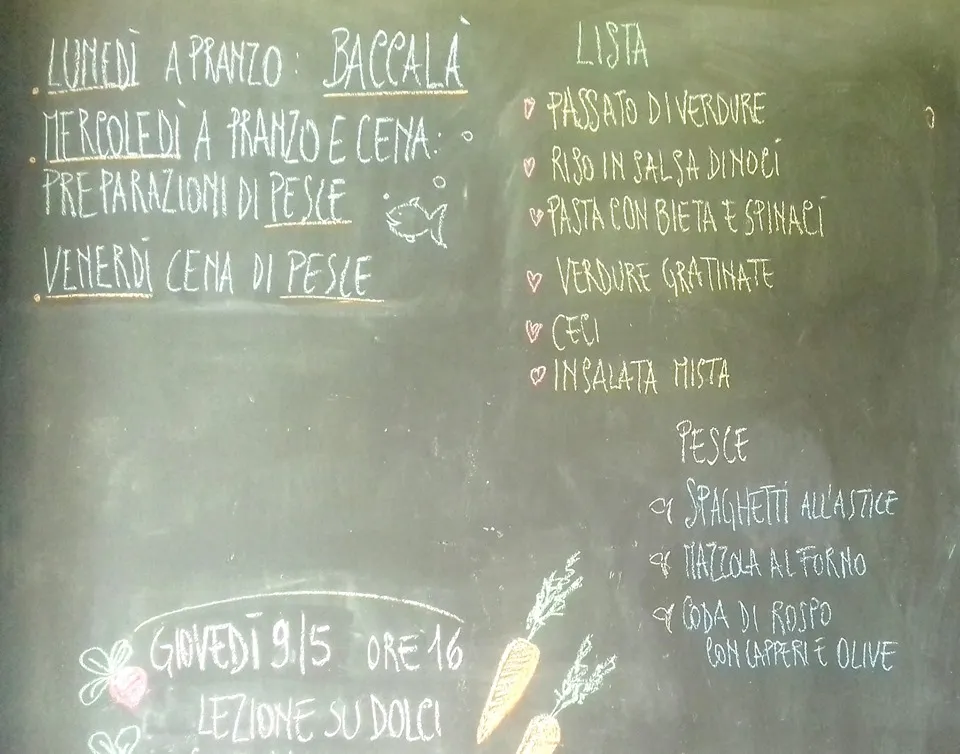 LUNEDÌ A PRANZO: BACCALÀ
MERCOLEDÌ A PRANZO E CENA:
PREPARAZIONI DI PESCE
VENERDÌ CENA DI PESCE
GIOVEDÌ 9/5 ORE 16
LEZIONE SU DOLCI
LISTA
PASSATO DI VERDURE
RISO IN SALSA DI NOCI
PASTA CON BIETA E SPINACI
VERDURE GRATINATE
CECI
INSALATA MISTA
PESCE
SPAGHETTI ALL'ASTICE
MAZZOLA AL FORNO
CODA DI ROSPO
CON CAPPERI E OLIVE